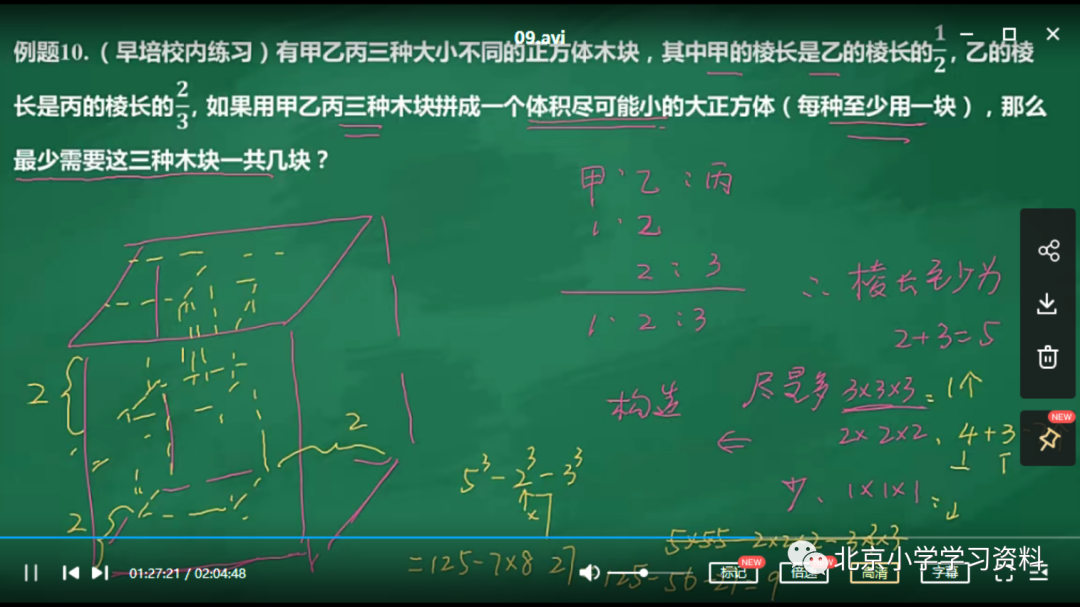 09.avi
例题10.（早培校内练习）有甲乙丙三种大小不同的正方体木块，其中甲的棱长是乙的棱长的1/2，乙的棱
长是丙的棱长的2/3，如果用甲乙丙三种木块拼成一个体积尽可能小的大正方体（每种至少用一块），那么
最少需要这三种木块一共几块？
甲：乙：丙
1：2
2：3
1：2：3
∴棱长至少为
2+3=5
构造
尽量多 3×3×3=1个
⇐
2×2×2、4+3
少、1×1×1：
2
2
2
5³-2³-3³
×7
=125-7×8 27
5×5×5-2×2×2-3×3×3
125-56-27=9
NEW
01:27:21 / 02:04:48
标记
NEW
倍速
高清
字幕
北京小学学习资料